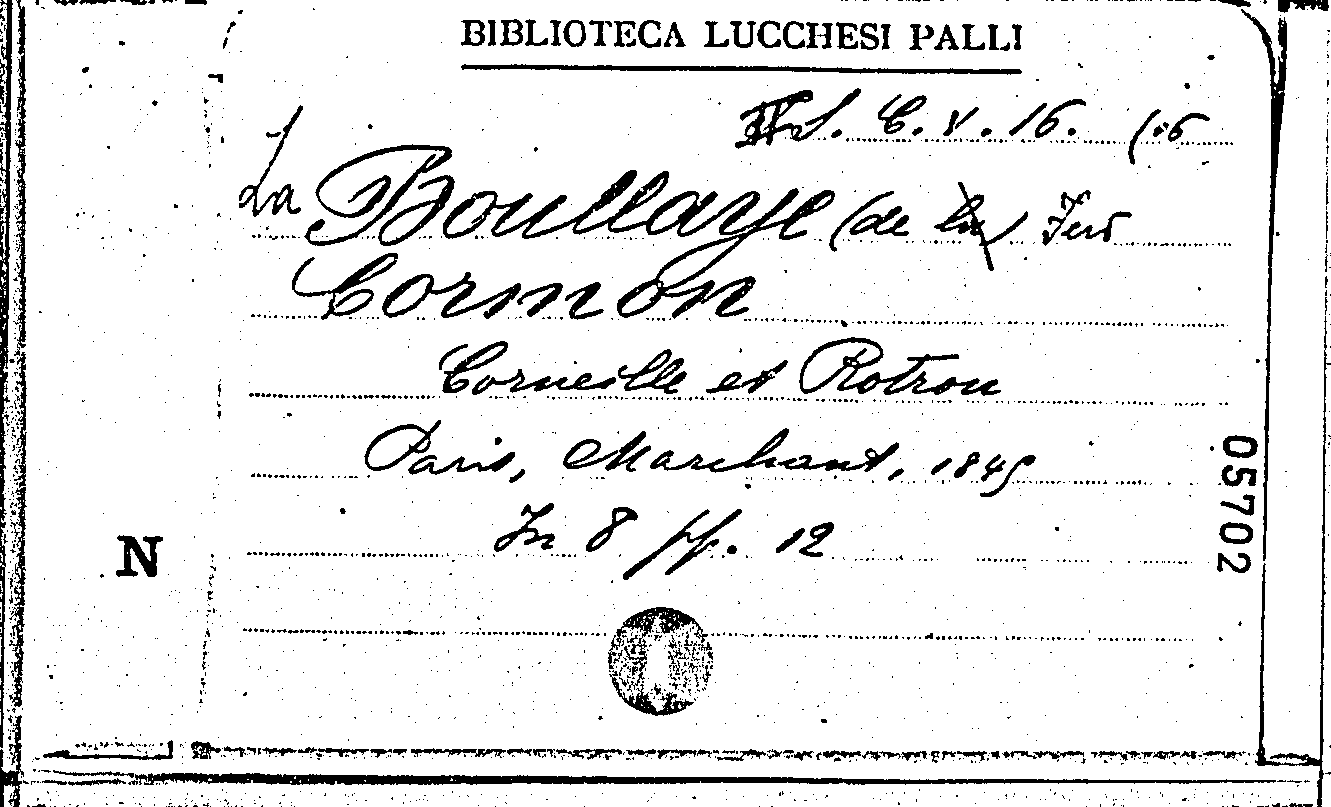 BIBLIOTECA LUCCHESI PALLI
S. C. V. 16. (06
La Boullaye (de la) Ferd
Cormon
Corneille et Rotrou
Paris, Marchant, 1845
In 8 pp. 12
N
05702